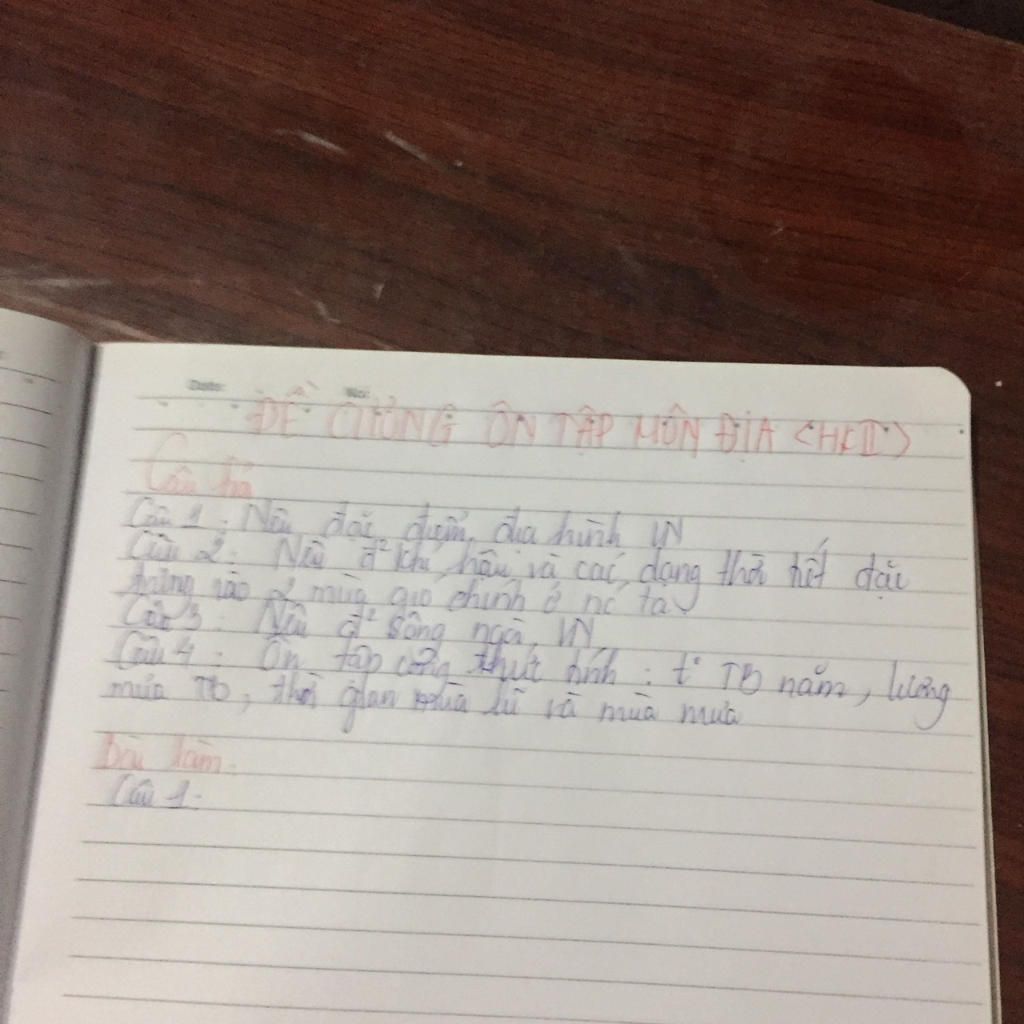 Date: No:
ĐỀ CƯƠNG ÔN TẬP MÔN ĐỊA <HKII>
Câu hỏi
Câu 1: Nêu đặc điểm địa hình VN
Câu 2: Nêu đ² khí hậu và các dạng thời tiết đặc
trưng vào 2 mùa gió chính ở nc ta
Câu 3: Nêu đ² sông ngòi VN
Câu 4: Ôn tập công thức tính: t° TB năm, lượng
mưa TB, thời gian mùa lũ và mùa mưa
Bài làm
Câu 1: